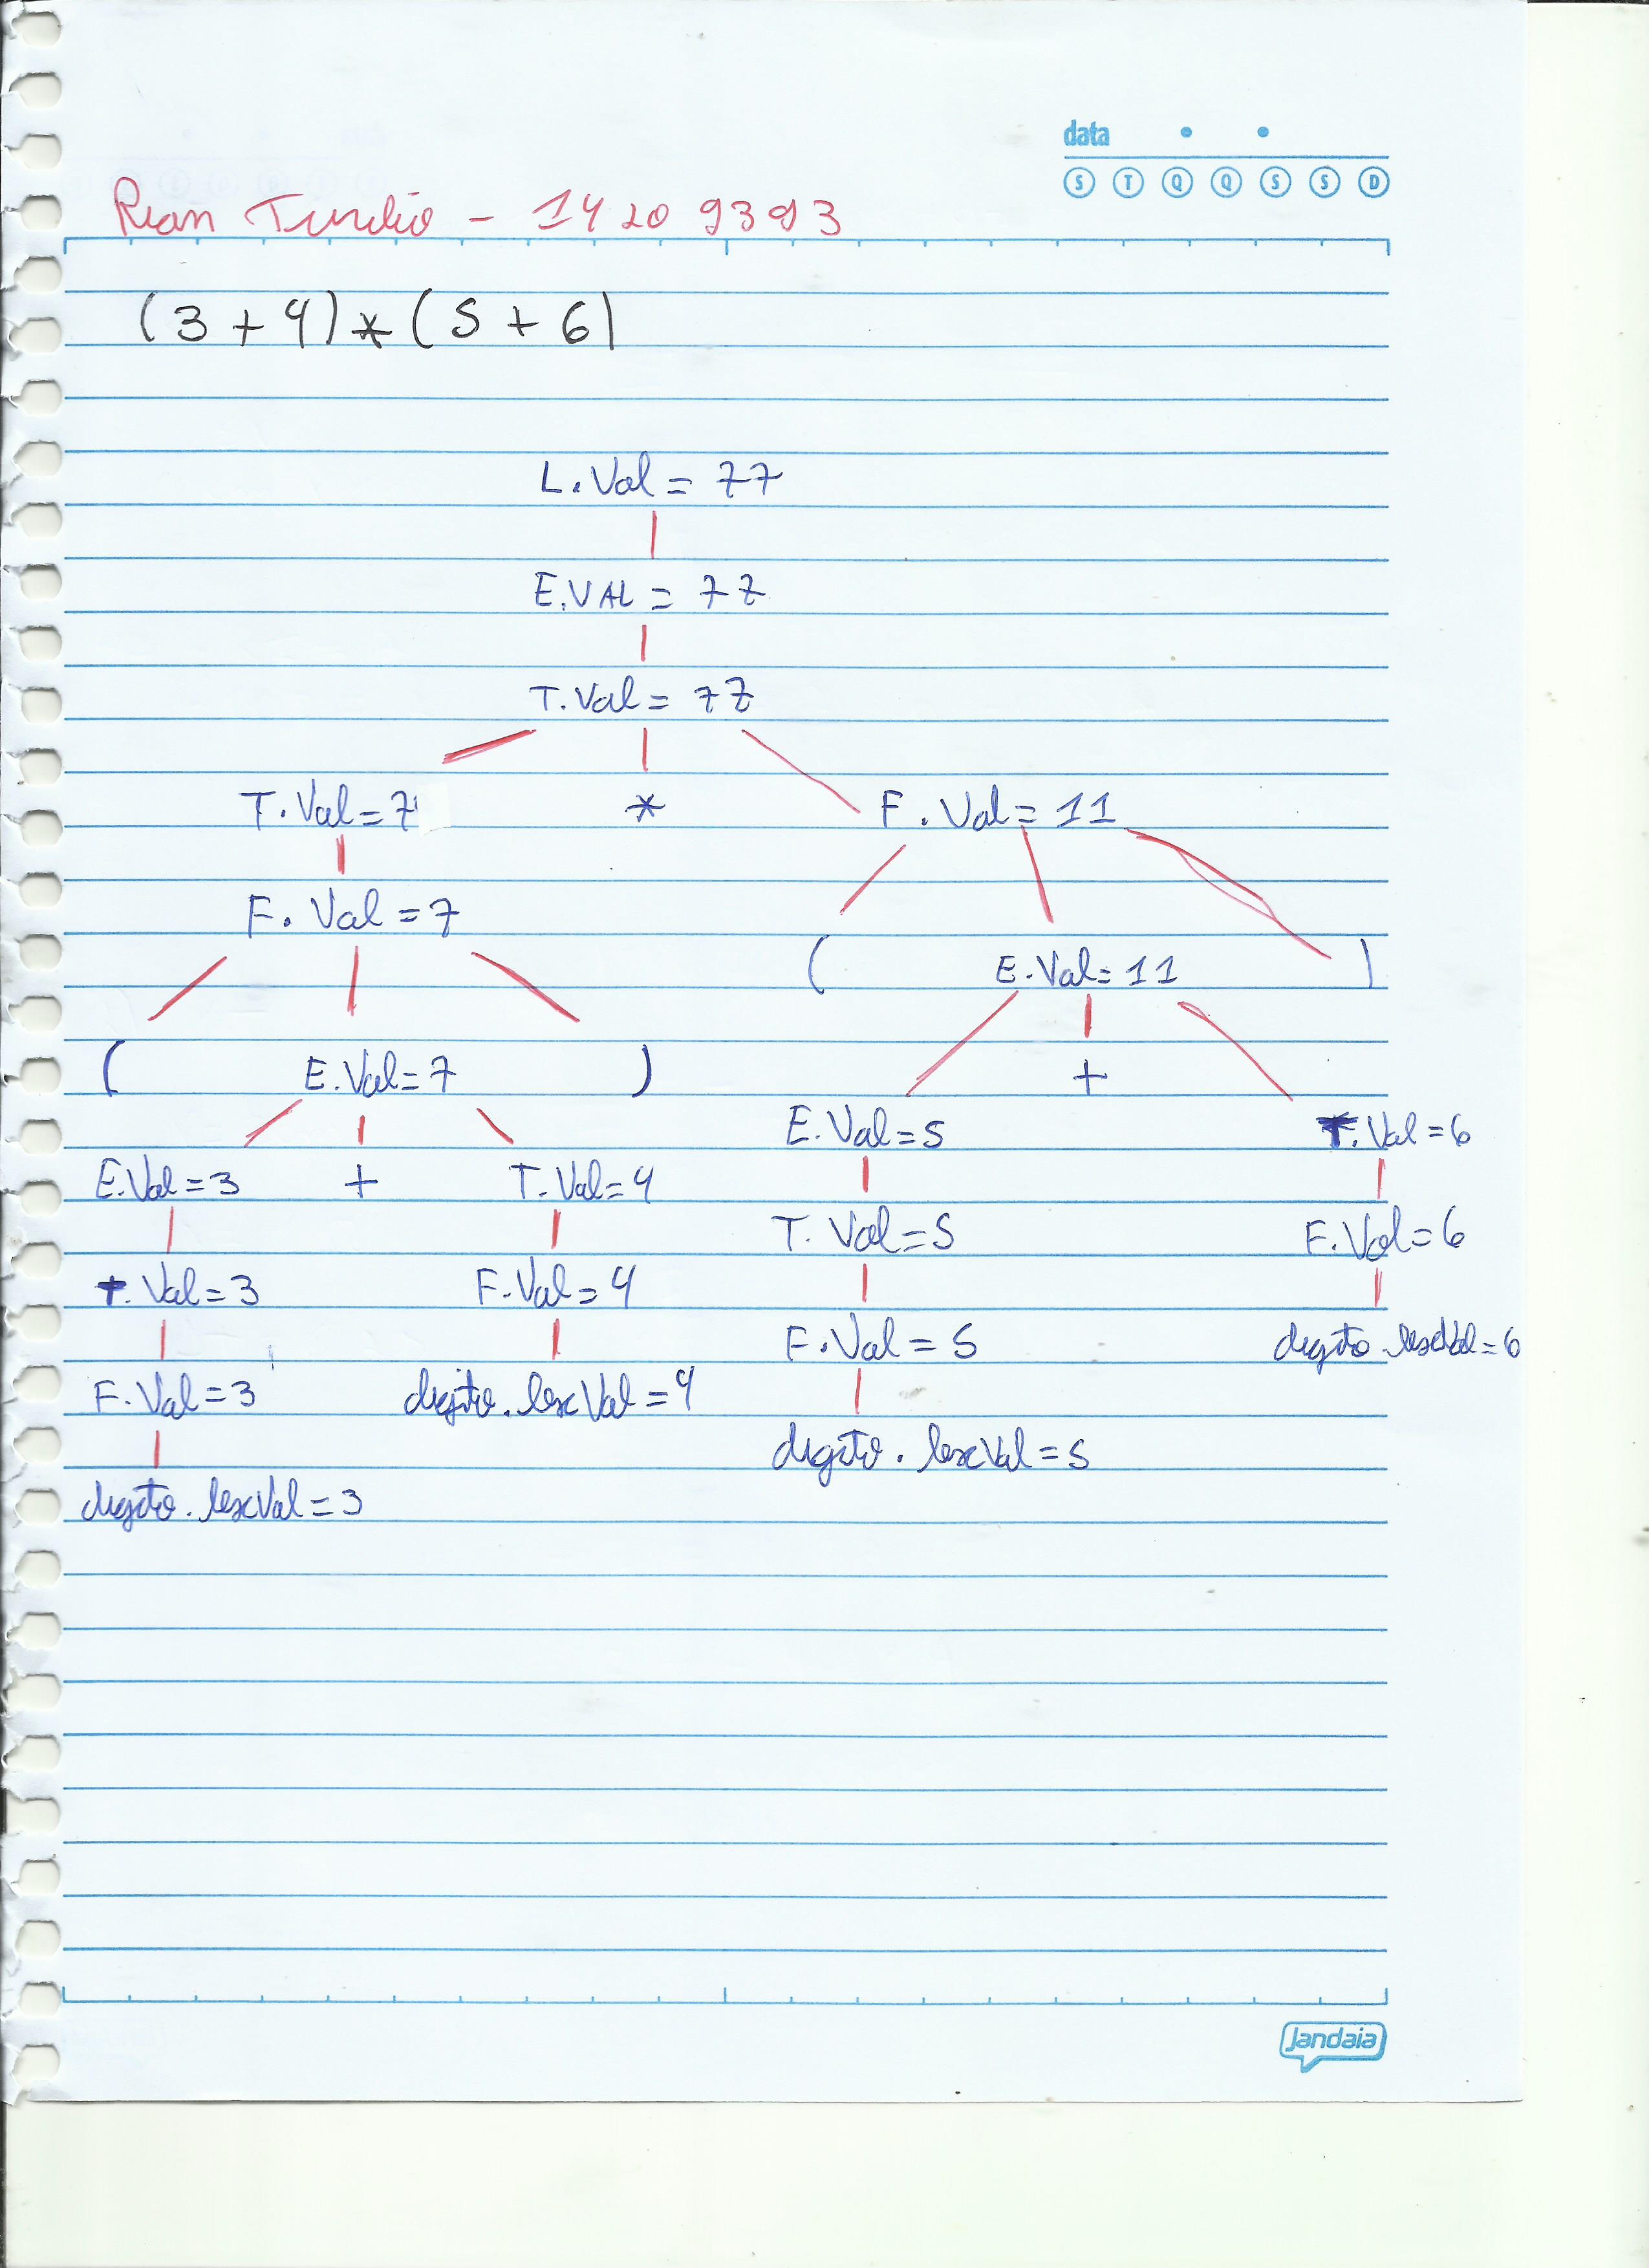 data
S T Q Q S S D
Rian Turibio - 14209393
(3+4)*(5+6)
L.Val = 77
E.VAL = 77
T.Val = 77
T.Val=7 * F.Val=11
F.Val=7
( E.Val=11 )
( E.Val=7 )
+
E.Val=5 T.Val=6
E.Val=3 + T.Val=4
T.Val=5 F.Val=6
T.Val=3 F.Val=4
F.Val=5 digito.lexVal=6
F.Val=3 digito.lexVal=4
digito.lexVal=5
digito.lexVal=3
Jandaia